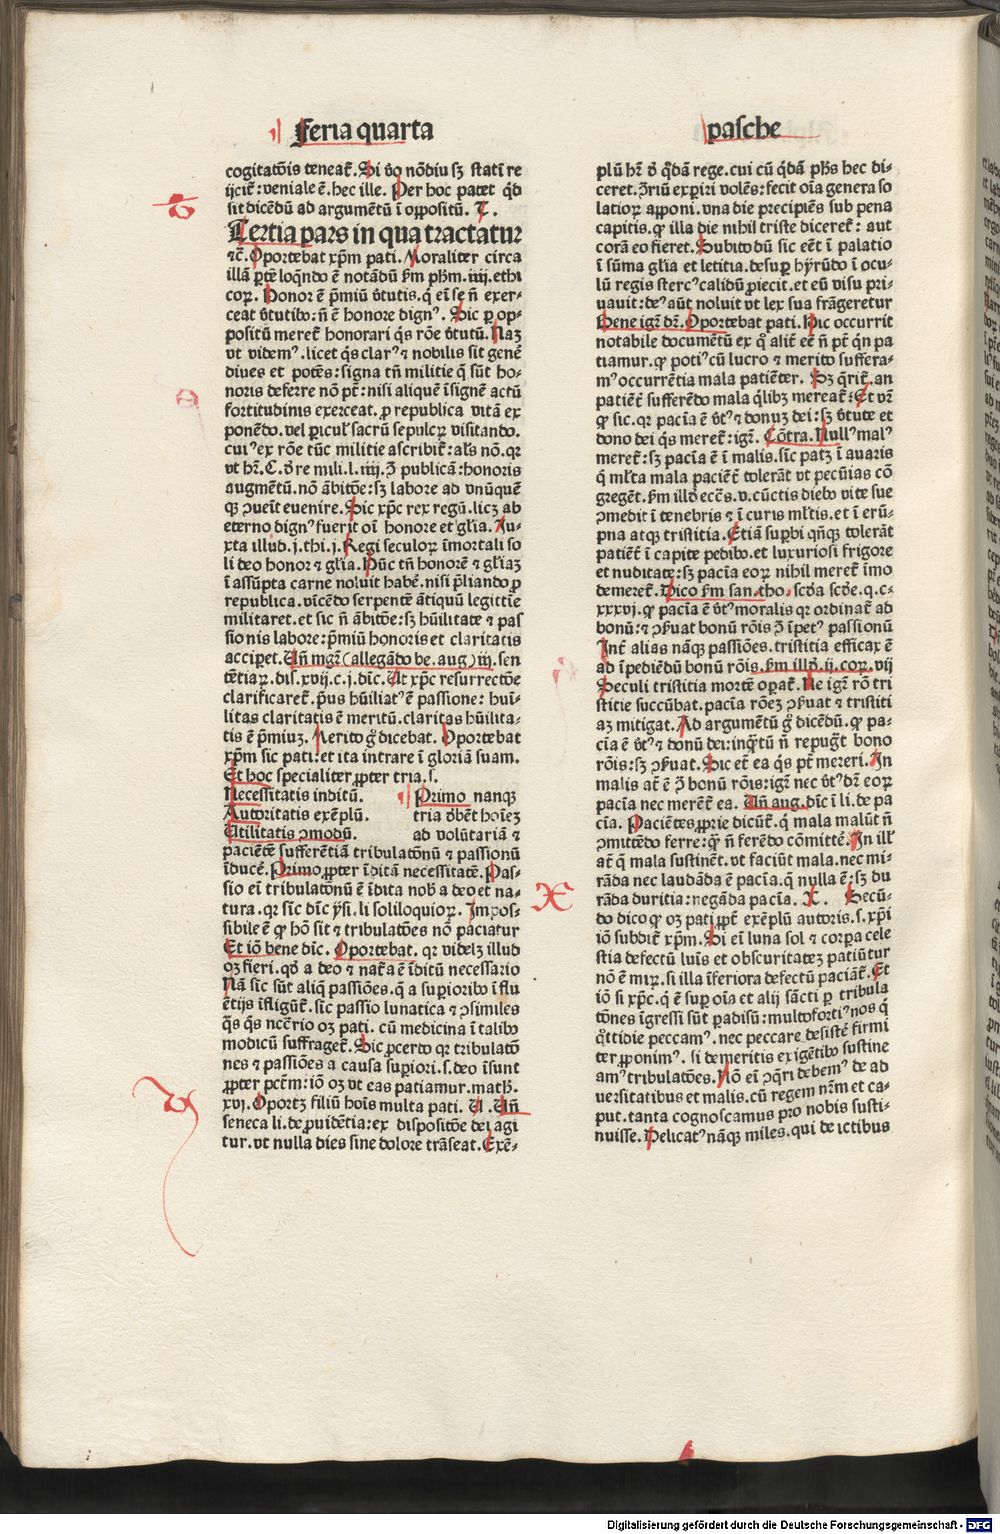 Feria quarta
pasche
cogitatōis teneat᷑. Si v̓o nōdiu sꝫ statī re
ijcit᷑: veniale ē. hec ille. Per hoc patet qđ
sit dicēdū ad argumētū ī oppositū. T.
Tertia pars in qua tractatur
⁊c̄. Oportebat xp̄m pati. Moraliter circa
illā ꝑtē loq̄ndo ē notādū ẜm pħm. iiij. ethi
coꝝ. Honor ē p̄miū v̓tutis. q̇ ei se n̄ exer-
ceat v̓tutibꝰ: n̄ ē honore dignꝰ. Sic ꝑ op-
positū meret᷑ honorari q̇s rōe v̓tutū. Naꝫ
vt videmꝰ. licet q̇s clarꝰ ⁊ nobilis sit gene̓
diues et potēs: signa tn̄ militie q̄ sūt ho-
noris deferre nō pt̄: nisi aliquē īsignē actū
fortitudinis exerceat. ꝓ republica vitā ex
ponēdo. vel ꝑiculꝭ sacrū sepulcꝝ visitando.
cuiꝰ ex rōe tūc militie ascribit᷑: al̓s nō. qꝛ
vt hr̄. C. d̓ re mili. l. iiij. Ꝫ publicā: honoris
augmētū. nō ābitōe: sꝫ labore ad vnūquē
qꝫ ꝓuēit euenire. Sic xp̄c rex regū. licꝫ ab
eterno dignꝰ fuerit oī honore et gl̓ia. Iu-
xta illud. j. thi. j. Regi seculoꝝ īmortali so
li deo honor ⁊ gl̓ia. Hūc tn̄ honorē ⁊ gl̓iaꝫ
ī assūpta carne noluit habe̓. nisi p̄liando ꝓ
republica. vīcēdo serpentē ātiquū legittīe
militaret. et sic n̄ ābitōe: sꝫ hūilitate ⁊ pas
sionis labore: p̄miū honoris et claritatis
acciꝑet. Un̄ mgr̄ (allegādo be. aug) iij. sen
tētiaꝝ. dis. xvij. c. j. dic̄. Ut xp̄c resurrectōe
clarificaret᷑. p̄us hūiliatꝰ ē passione: huī-
litas claritatis ē meritū. claritas hūilita-
tis ē p̄miuꝫ. Merito g̊ dicebat. Oportebat
xp̄m sic pati: et ita intrare ī gloriā suam.
Et hoc specialiter ꝓpter tria. s.
Necessitatis inditū.
Autoritatis exēplū.
Utilitatis ꝯmodū.
Primo nanqꝫ
tria d̓bēt hoīeꝫ
ad volūtariā ⁊
paciētē sufferētiā tribulatōnū ⁊ passionū
īducē. Primo ꝓpter īditā necessitatē. Pas-
sio ei tribulatōnū ē īdita nob̓ a deo et na-
tura. qꝛ sic̄ dic̄ yṡi. li soliloquioꝝ. Impos-
sibile ē qꝙ hō sit ⁊ tribulatōes nō paciatur
Et iō bene dic̄. Oportebat. qꝛ videlꝫ illud
oꝫ fieri. qd̓ a deo ⁊ nat̓a ē īditū necessario
Nā sic̄ sūt aliq̄ passiōes. q̄ a suꝑioribꝰ īflu
ētijs īfligūt᷑. sic̄ passio lunatica ⁊ ꝯsimiles
q̄s q̇s ncc̄rio oꝫ pati. cū medicina ī talibꝰ
modicū suffraget᷑. Sic ꝓcerto qꝛ tribulatō
nes ⁊ passiōes a causa suꝑiori. s. deo īsunt
ꝓpter pctm̄: iō oꝫ vt eas patiamur. matħ.
xvj. Oportꝫ filiū hoīs multa pati. U. Un̄
seneca li. de ꝓuidētia: ex dispositōe dei agi
tur. vt nulla dies sine dolore trāseat. Exē-
plū hr̄ d̓ q̇dā rege. cui cū q̇dā pħs hec di-
ceret. Ꝫriū exꝑiri volēs: fecit oīa genera so
latioꝝ apponi. vna die precipiēs sub pena
capitis. qꝙ illa die nihil triste diceret᷑: aut
corā eo fieret. Subito dū sic eēt ī palatio
ī sūma gl̓ia et letitia. desuꝑ hyrūdo ī ocu-
lū regis stercꝰ calidū ꝓiecit. et eū visu pri-
uauit: deꝰ aūt noluit vt lex sua frāgeretur
Bene igr̄ dr̄. Oportebat pati. Hic occurrit
notabile documētū ex q̊ alit᷑ eē n̄ pt̄ q̇n pa
tiamur. qꝙ potiꝰ cū lucro ⁊ merito suffera-
mꝰ occurrētia mala patiēter. Sꝫ q̄rit᷑. an
patiēt᷑ sufferēdo mala q̄libꝫ mereat᷑: Et vr̄
qꝙ sic. qꝛ pacīa ē v̓tꝰ ⁊ donuꝫ dei: sꝫ v̓tute et
dono dei q̇s meret᷑: igr̄. Cōtra. Nullꝰ malꝰ
meret᷑: sꝫ pacīa ē ī malis. sic̄ patꝫ ī auaris
q̇ ml̓ta mala paciēt᷑ tolerāt vt pecūias cō
gregēt. ẜm illd̓ ecc̄s. v. cūctis diebꝰ vite sue
ꝯmedit ī tenebris ⁊ ī curis ml̓tis. et ī erū-
pna atqꝫ tristitia. Etiā suꝑbi qn̄qꝫ tolerāt
patiēt᷑ ī capite pedibꝰ. et luxuriosi frigore
et nuditate: sꝫ pacīa eoꝝ nihil meret᷑ īmo
demeret᷑. Dico ẜm san. tho. scd̓a scd̓e. q. c-
xxxvj. qꝙ pacīa ē v̓tꝰ moralis qꝛ ordinat᷑ ad
bonū: ⁊ ꝯẜuat bonū rōis Ꝫ īpetꝰ passionū
Int᷑ alias nāqꝫ passiōes. tristitia efficax ē
ad īpediēdū bonū rōis. ẜm illd̓. ij. coꝝ. vij
Seculi tristitia mortē oꝑat᷑. Ne igr̄ rō tri
stitie succūbat. pacīa rōeꝫ ꝯẜuat ⁊ tristiti
aꝫ mitigat. Ad argumētū g̊ dicēdū. qꝙ pa-
cīa ē v̓tꝰ ⁊ donū dei: inq̄tū n̄ repugt᷑ bono
rōis: sꝫ ꝯẜuat. Sic et᷑ ea q̇s pt̄ mereri. In
malis at᷑ ē Ꝫ bonū rōis: igr̄ nec v̓tꝰ dr̄ eoꝝ
pacīa nec merēt᷑ ea. Un̄ aug. dic̄ ī li. de pa
cīa. Paciētes ꝓprie dicūt᷑. q̇ mala malūt n̄
ꝯmittēdo ferre: q̄ꝫ n̄ ferēdo cōmitte̓. In illꝭ
at᷑ q̇ mala sustinēt. vt faciūt mala. nec mi-
rāda nec laudāda ē pacīa. q̄ nulla ē: sꝫ du
rāda duritia: negāda pacīa. X. Secū-
do dico qꝙ oꝫ pati ꝓpt᷑ exēplū autoris. s. xp̄i
iō subdit᷑ xp̄m. Si ei luna sol ⁊ corꝑa cele
stia defectū luīs et obscuritateꝫ patiūtur
nō ē miꝝ. si illa īferiora defectū paciāt᷑. Et
iō si xp̄c. q̇ ē suꝑ oīa et alij sācti ꝑ tribula
tōnes īgressi sūt ꝑadisū: multofortiꝰ nos q̇
q̊ttidie peccamꝰ. nec peccare desistē firmi
ter ꝓponimꝰ. si demeritis exigētibꝰ sustine
amꝰ tribulatōes. Nō ei ꝯq̄ri debemꝰ de ad
uersitatibus et malis. cū regem nr̄m et ca-
put. tanta cognoscamus pro nobis susti-
nuisse. Delicatꝰ nāqꝫ miles. qui de ictibus
Digitalisierung gefördert durch die Deutsche Forschungsgemeinschaft - DFG